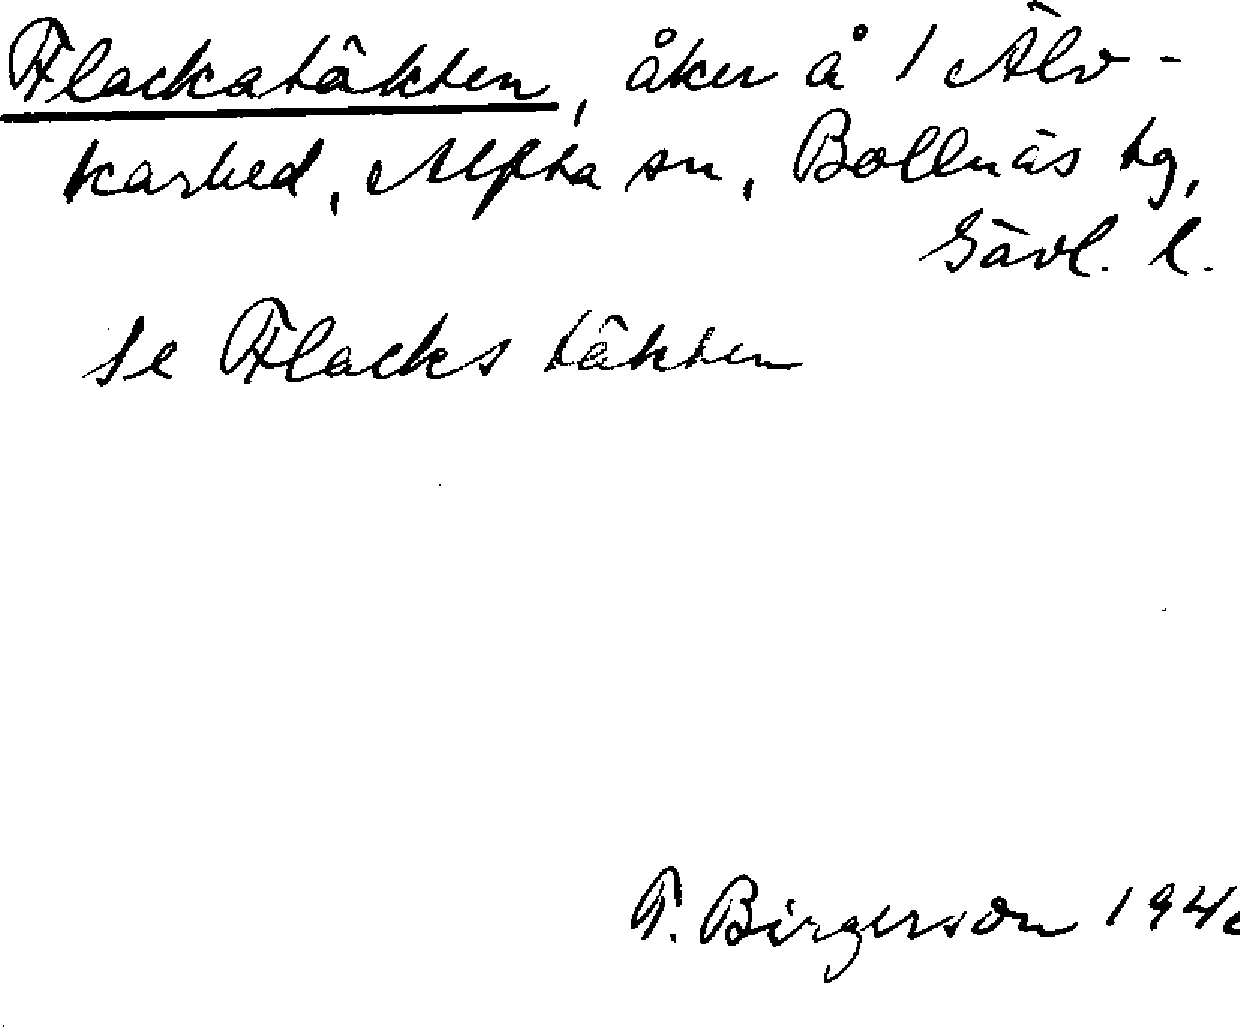 Flackatäkten, åker å 1 Älv-
karhed, Alfta sn, Bollnäs tg,
Gävl. l.
se Flackstäkten
T. Birgerson